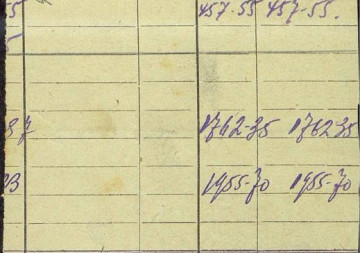 55 457-55 457-55.
5
87 1762-35 1762 35
23 1955-70 1955-70